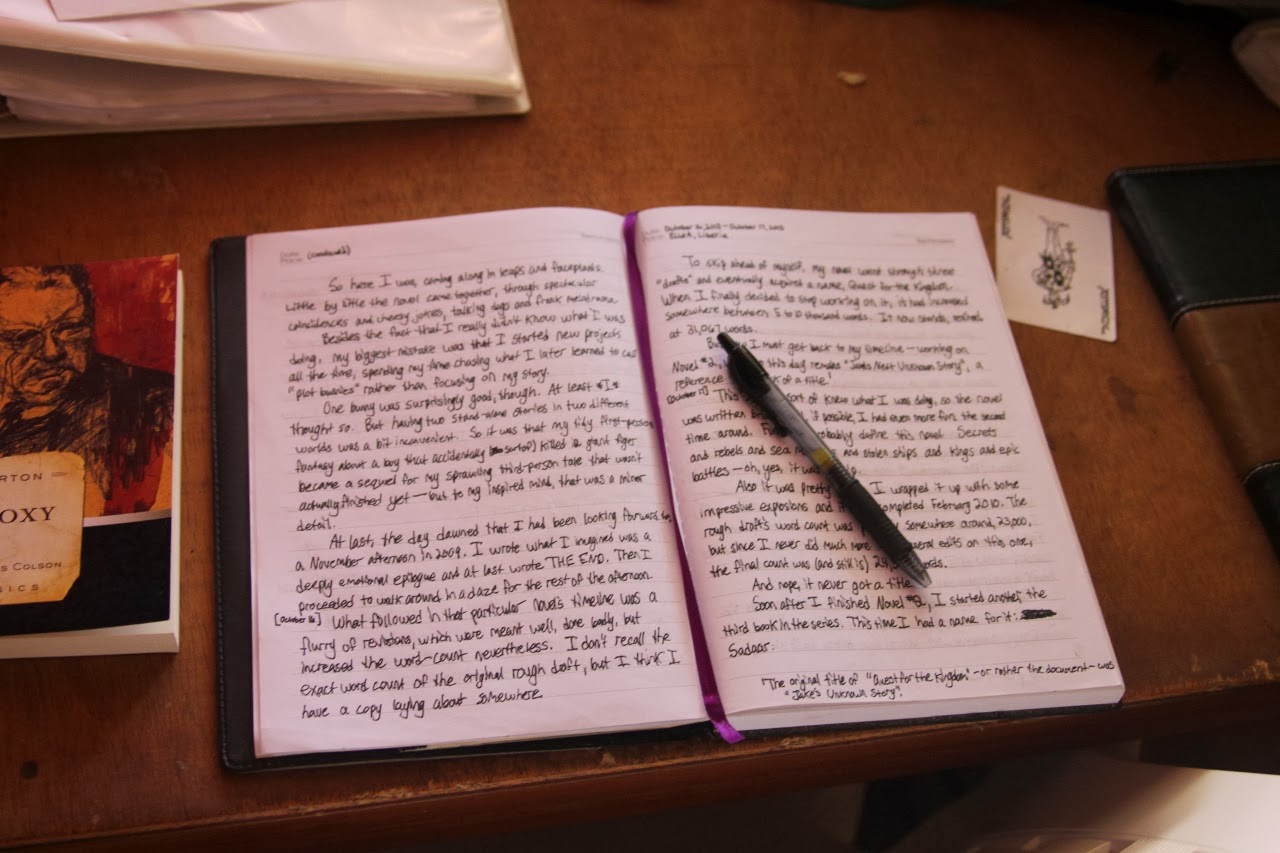 RTON
OXY
S COLSON
SICS
(continued)
So here I was, coming along in leaps and faceplants.
Little by little the novel came together, through spectacular
coincidences and cheesy jokes, talking dogs and frank melodrama.
Besides the fact that I really didn't know what I was
doing, my biggest mistake was that I started new projects
all the time, spending my time chasing what I later learned to call
"plot bunnies" rather than focusing on my story.
One bunny was surprisingly good, though. At least *I*
thought so. But having two stand-alone stories in two different
worlds was a bit inconvenient. So it was that my tidy first-person
fantasy about a boy that accidentally (sort of) killed a giant tiger
became a sequel for my sprawling third-person tale that wasn't
actually finished yet — but to my inspired mind, that was a minor
detail.
At last, the day dawned that I had been looking forward to,
a November afternoon in 2009. I wrote what I imagined was a
deeply emotional epilogue and at last wrote THE END. Then I
proceeded to walk around in a daze for the rest of the afternoon.
[October 16] What followed in that particular novel's timeline was a
flurry of revisions, which were meant well, done badly, but
increased the word-count nevertheless. I don't recall the
exact word count of the original rough draft, but I think I
have a copy laying about somewhere
October 16, 2013 - October 17, 2013
ELWA, Liberia
To skip ahead of myself, my novel went through three
"drafts" and eventually acquired a name, Quest for the Kingdom.
When I finally decided to stop working on it, it had increased
somewhere between 5 to 10 thousand words. It now stands, retired
at 31,067 words.
I must get back to my timeline — working on
Novel #2, this day remains "Jake's Next Unknown Story", a
reference of a title.¹
[October 17] This sort of knew what I was doing, so the novel
was written if possible, I had even more fun the second
time around. probably define this novel. Secrets
and rebels and sea and stolen ships and kings and epic
battles — oh, yes, it was
Also it was pretty I wrapped it up with some
impressive explosions and completed February 2010. The
rough draft's word count was somewhere around 23,000,
but since I never did much more several edits on this one,
the final count was (and still is) words.
And nope, it never got a title.
Soon after I finished Novel #2, I started another, the
third book in the series. This time I had a name for it:
Sadaar.
¹The original title of "Quest for the Kingdom" - or rather the document - was
"Jake's Unknown Story".